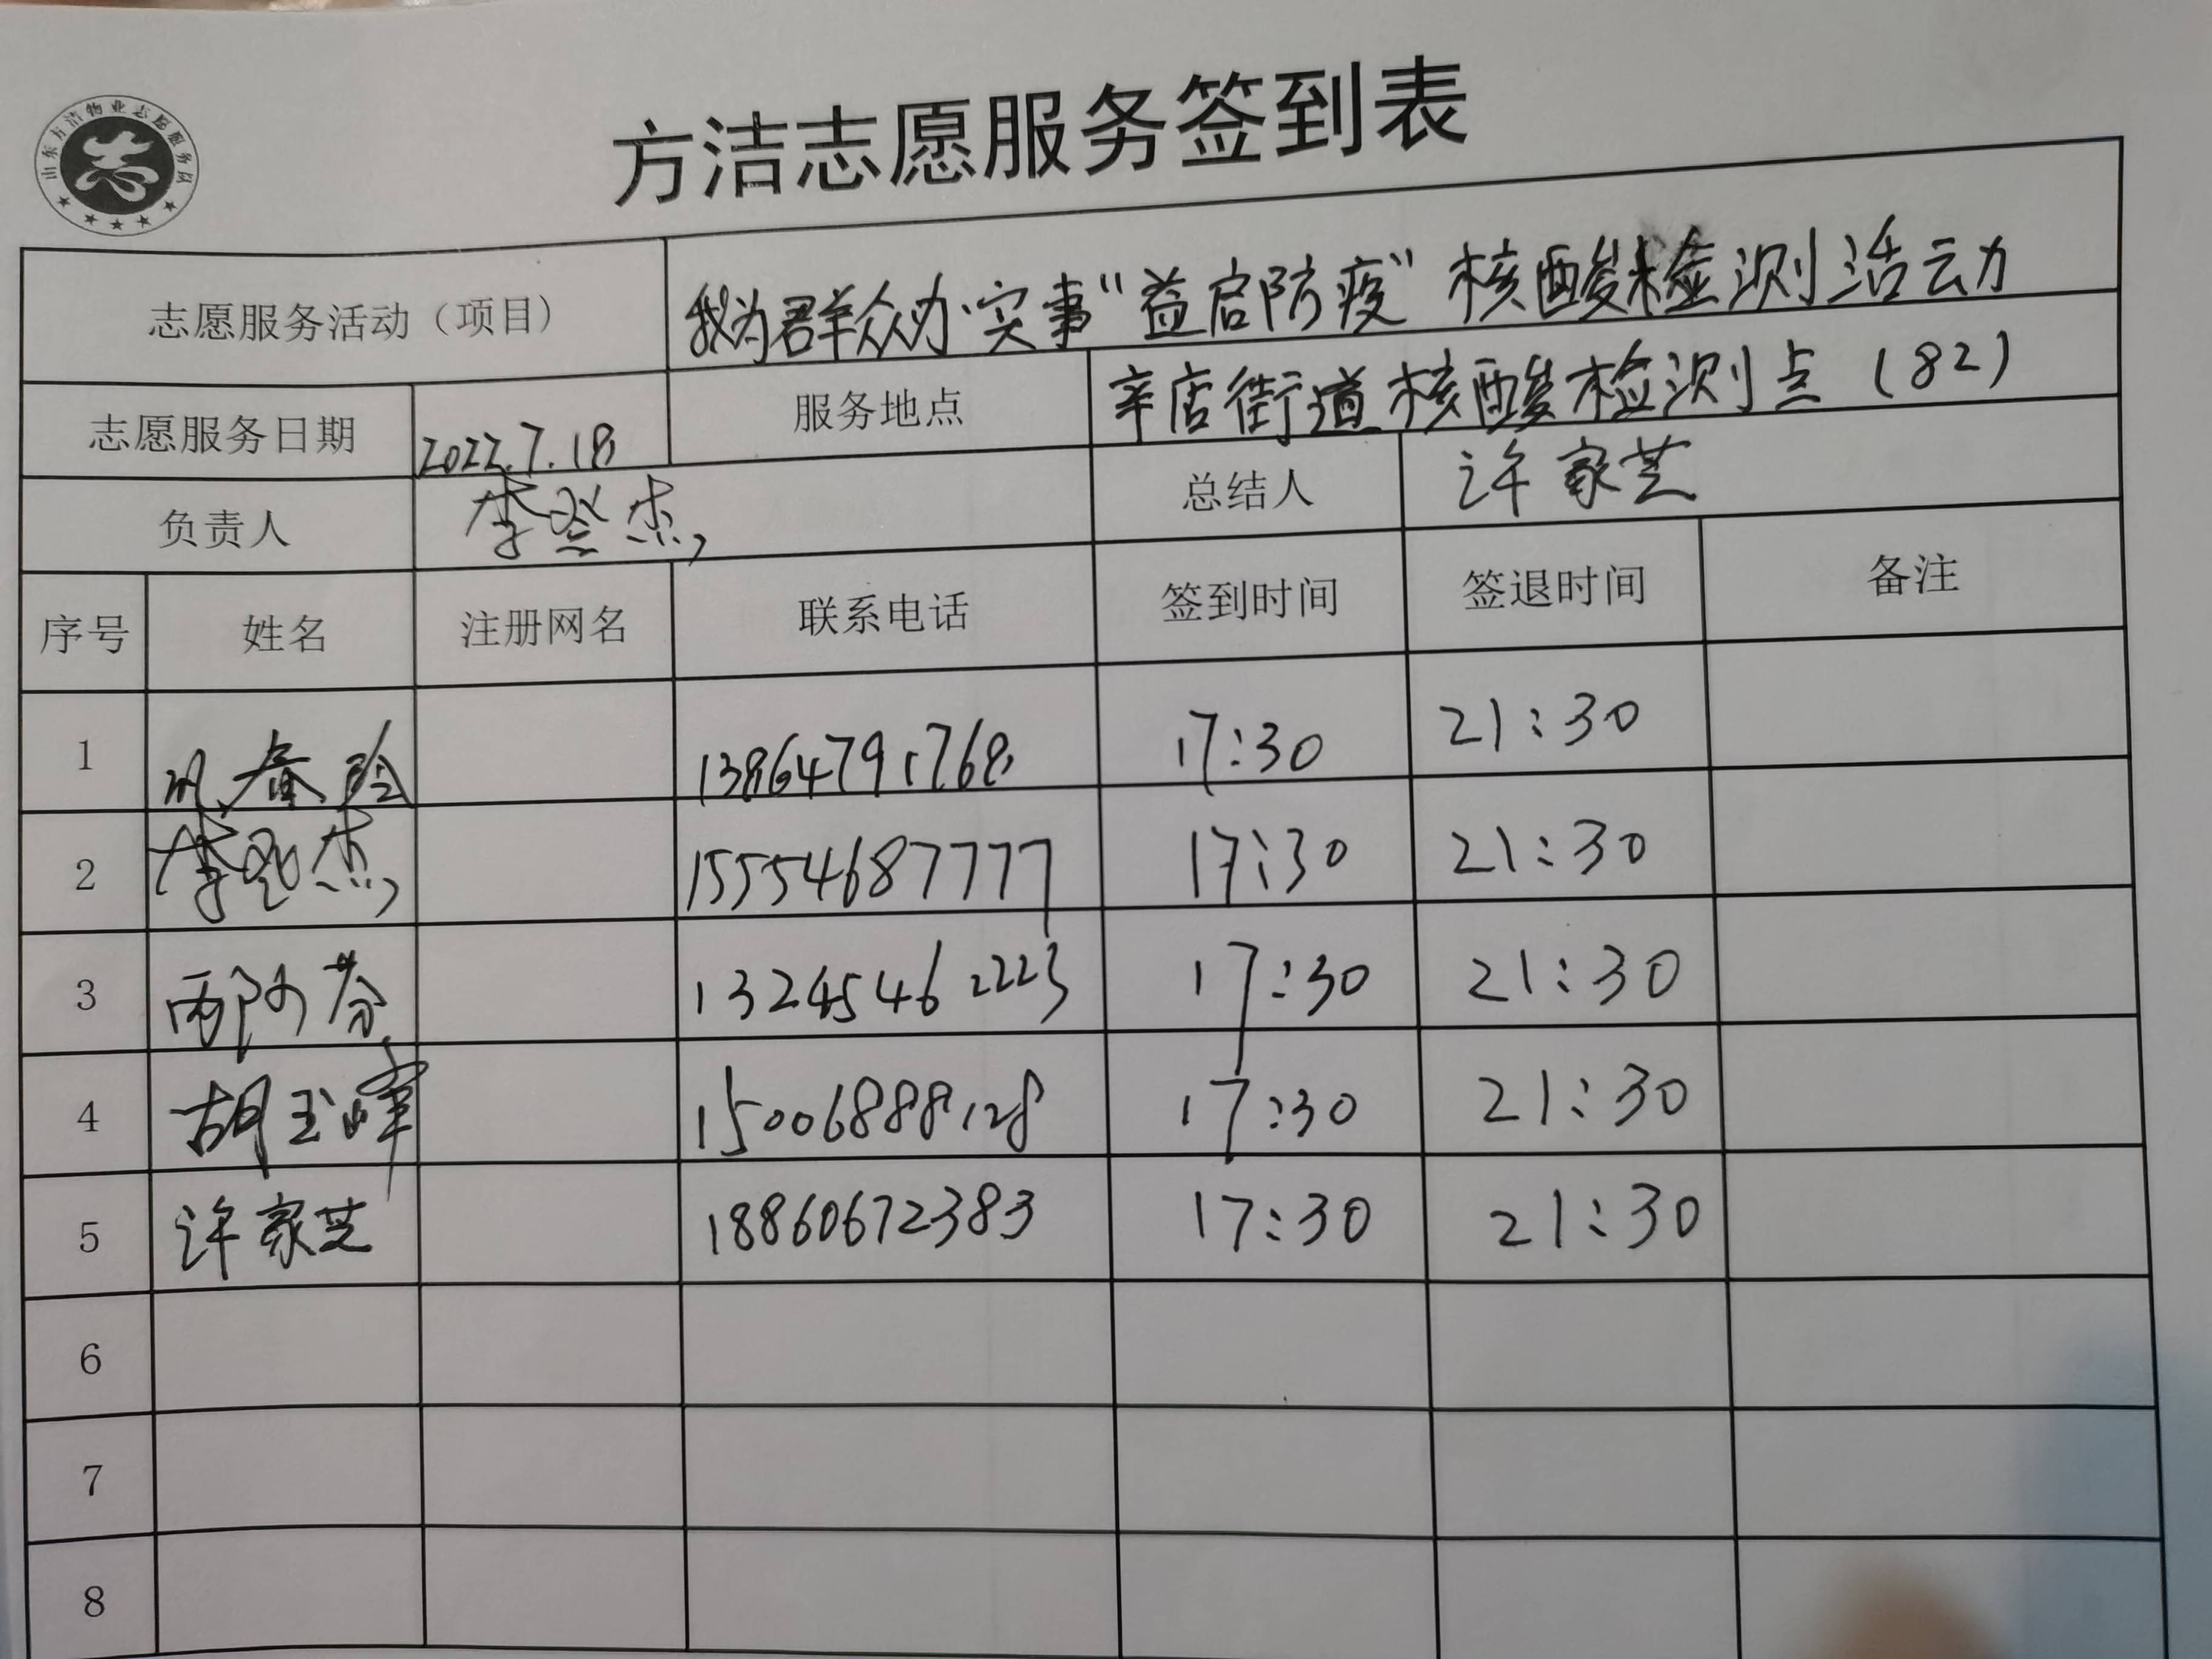 山东方洁物业志愿服务队
方洁志愿服务签到表
志愿服务活动（项目） 我为群众办实事“益启防疫”核酸检测活动
志愿服务日期 2022.7.18 服务地点 辛店街道核酸检测点（82）
负责人 李登杰 总结人 许家芝
序号 姓名 注册网名 联系电话 签到时间 签退时间 备注
1 13864791768 17:30 21:30
2 李登杰 15554687777 17:30 21:30
3 13245462223 17:30 21:30
4 胡玉峰 15006888128 17:30 21:30
5 许家芝 18860672383 17:30 21:30
6
7
8